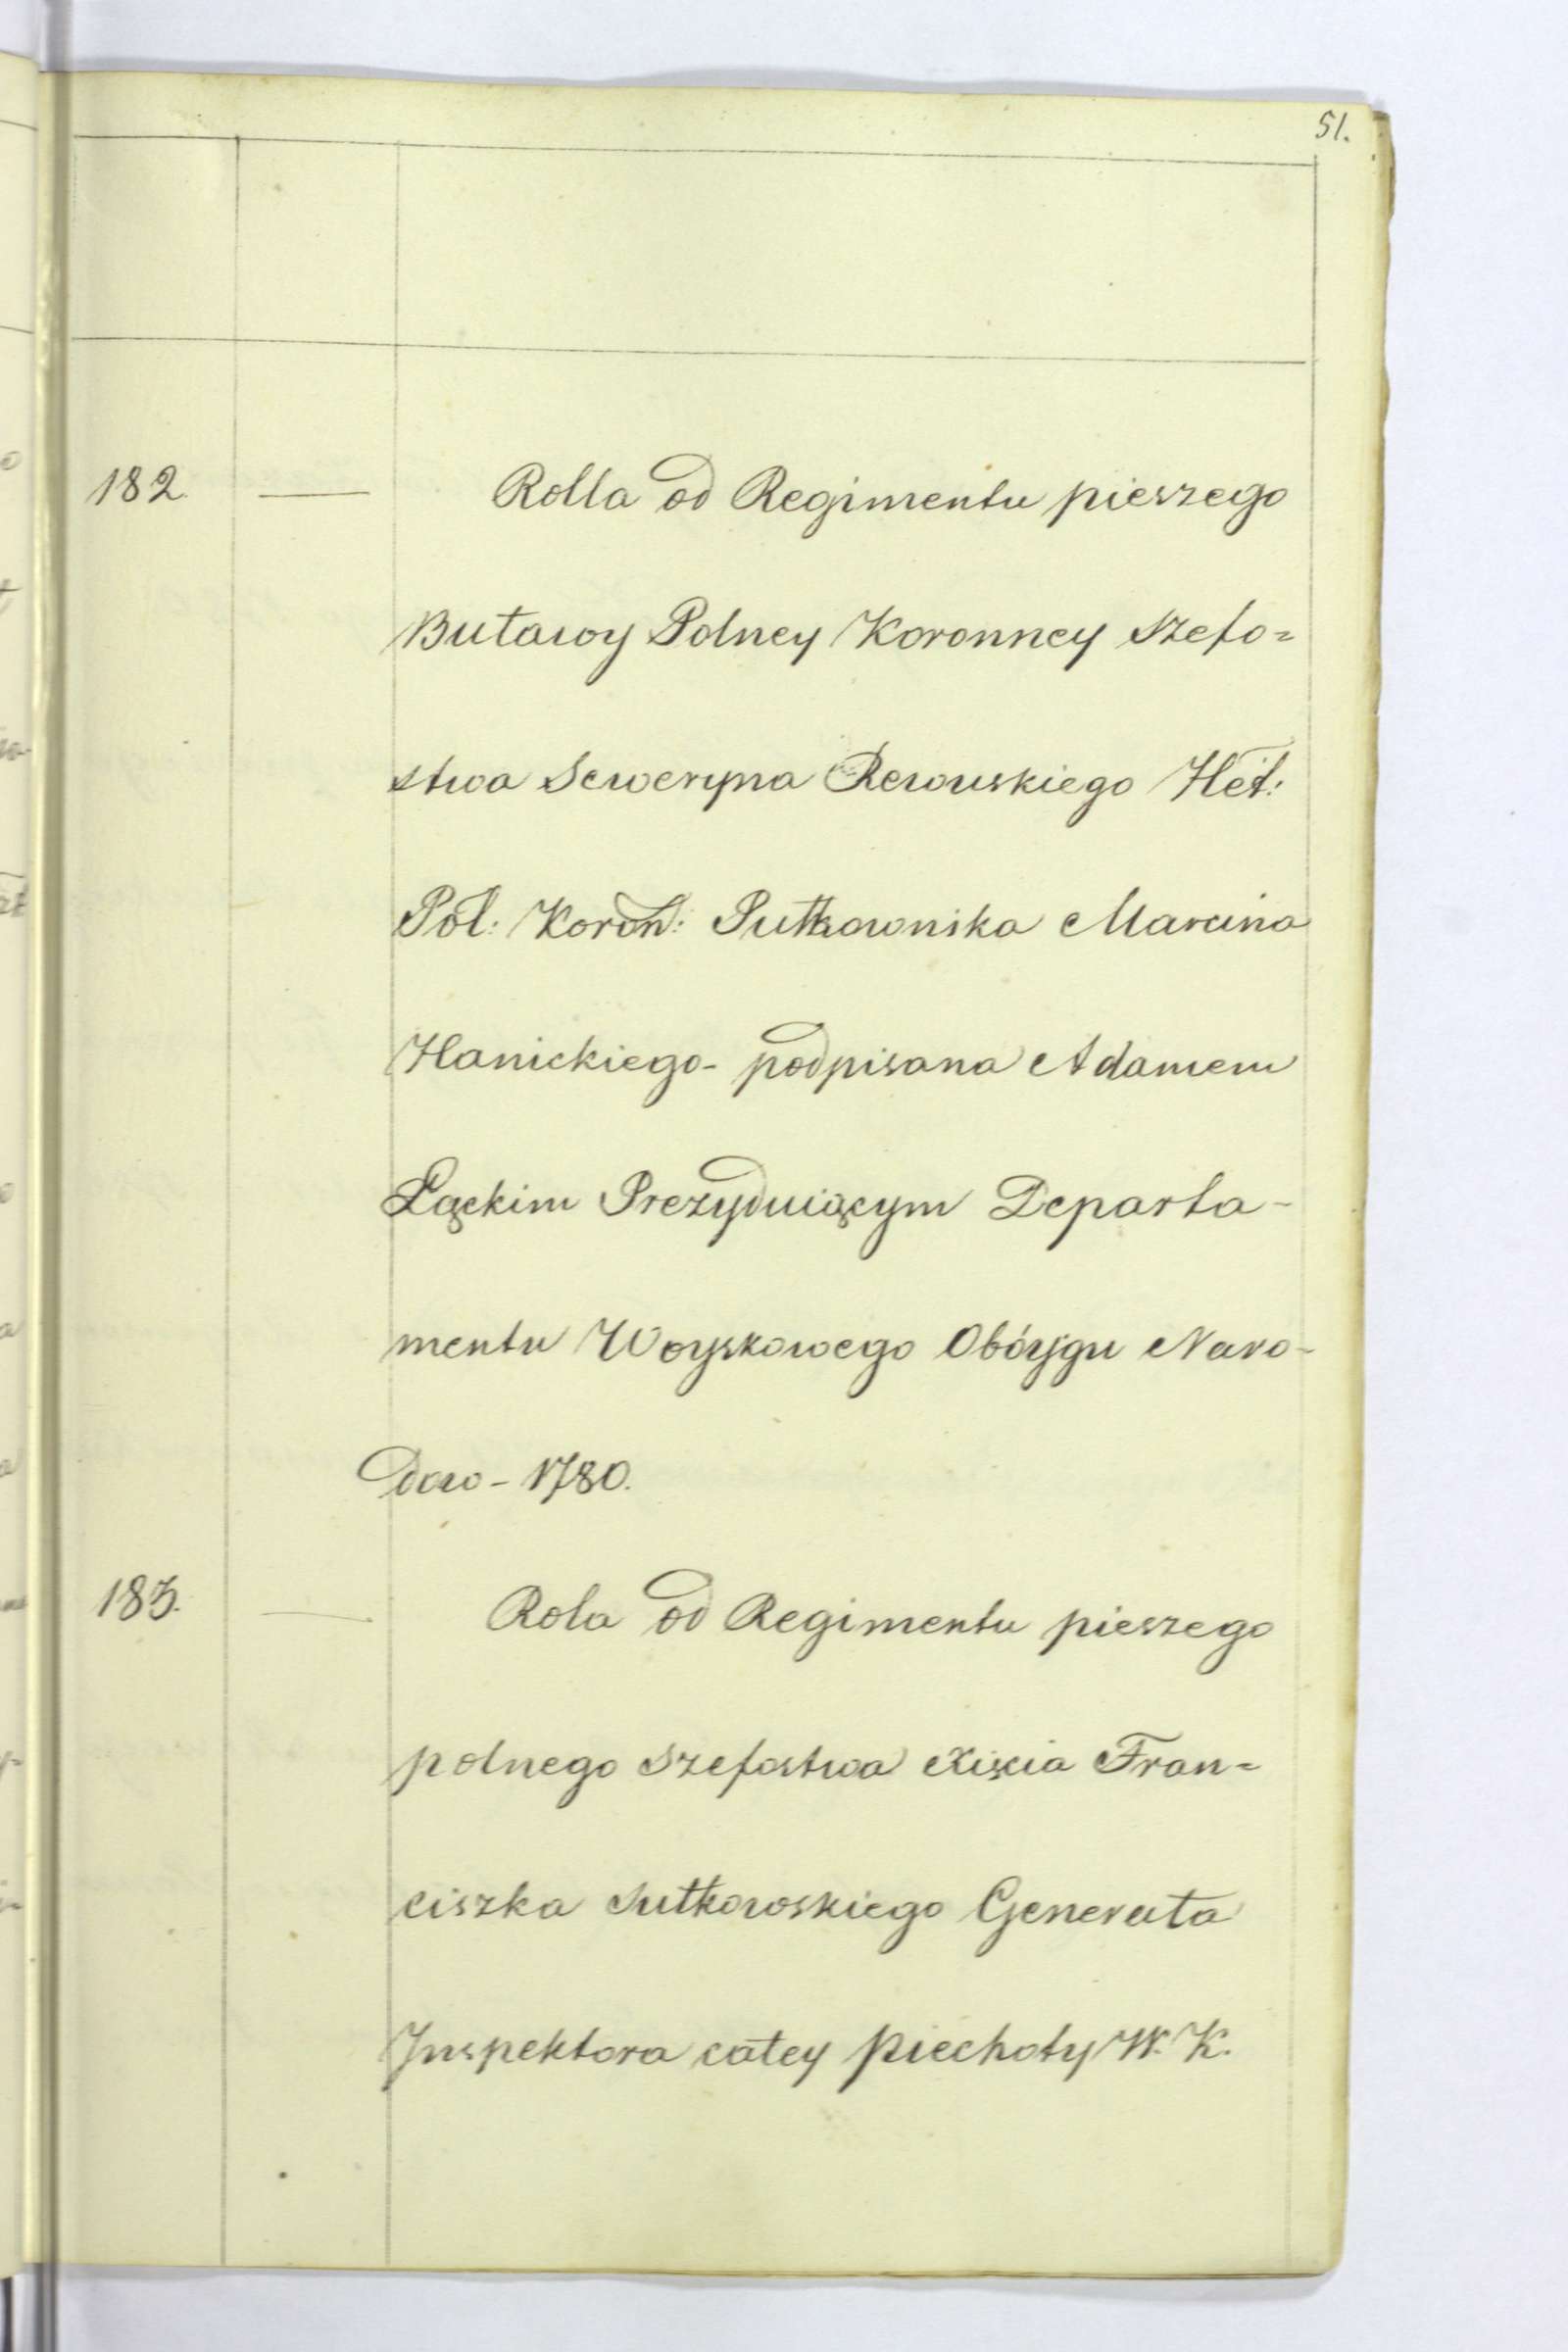 51.
182. — Rolla od Regimentu pieszego
Buławy Polney Koronney Szefo=
stwa Seweryna Rewuskiego Het:
Pol: Koron: Pułkownika Marcina
Hanickiego - podpisana Adamem
Łąckim Prezyduiącym Departa-
mentu Woyskowego Obóyga Naro-
dow - 1780.
183. — Rola od Regimentu pieszego
polnego Szefostwa Xięcia Fran=
ciszka Sułkowskiego Generała
Inspektora całey piechoty W. K.